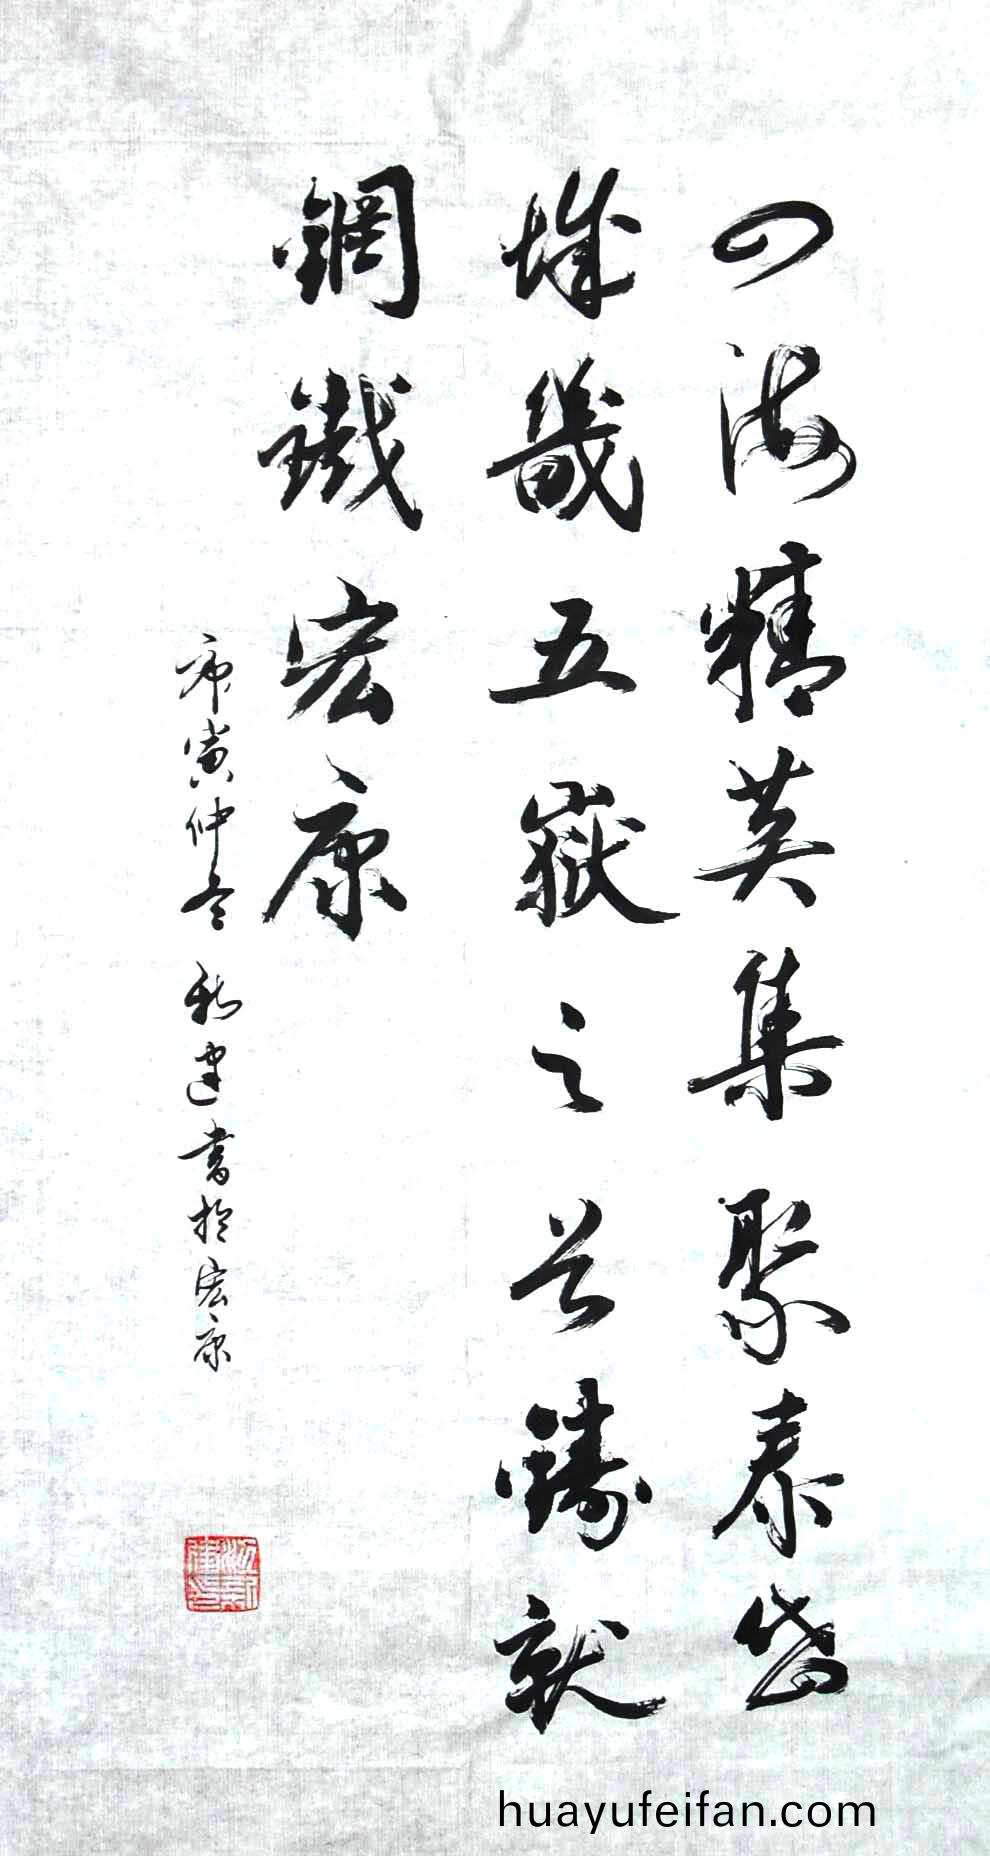 四海精英集聚泰岱
城畿五嶽之首鑄就
鋼鐵宏康
庚寅仲冬 新建書於宏康
huayufeifan.com